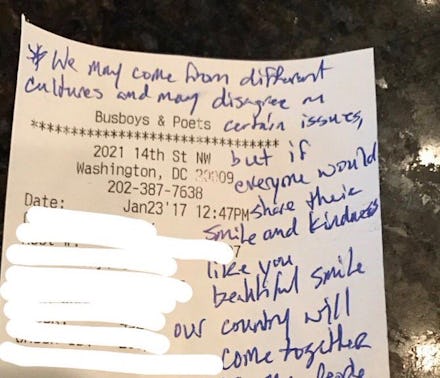 * We may come from different
cultures and may disagree on
certain issues,
Busboys & Poets
****************************
2021 14th St NW
Washington, DC 20009
202-387-7638
Date: Jan23'17 12:47PM
but if
everyone would
share their
smile and kindness
like you
beautiful smile
our country will
come together
people